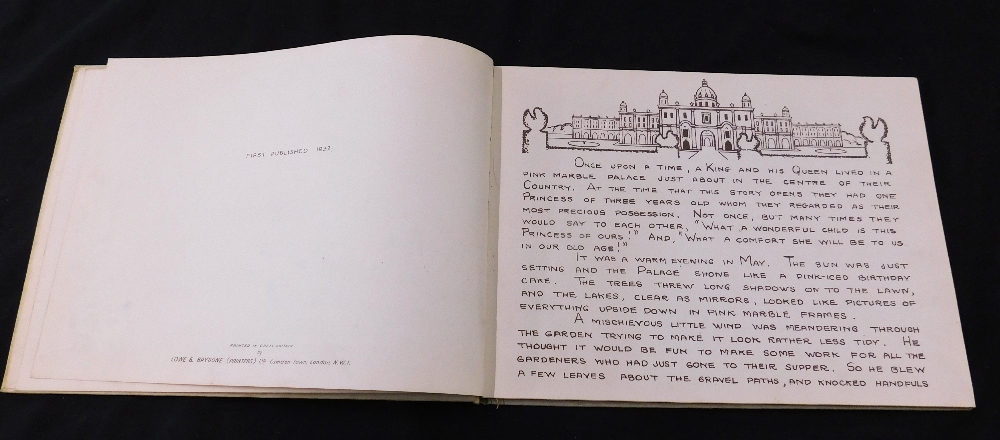 FIRST PUBLISHED 1937.
PRINTED IN GREAT BRITAIN
by
LOWE & BRYDONE (PRINTERS) LTD Camden Town, London N.W.1.
ONCE UPON A TIME, A KING AND HIS QUEEN LIVED IN A
PINK MARBLE PALACE JUST ABOUT IN THE CENTRE OF THEIR
COUNTRY. AT THE TIME THAT THIS STORY OPENS THEY HAD ONE
PRINCESS OF THREE YEARS OLD WHOM THEY REGARDED AS THEIR
MOST PRECIOUS POSSESSION. NOT ONCE, BUT MANY TIMES THEY
WOULD SAY TO EACH OTHER, "WHAT A WONDERFUL CHILD IS THIS
PRINCESS OF OURS!" AND, "WHAT A COMFORT SHE WILL BE TO US
IN OUR OLD AGE!"
IT WAS A WARM EVENING IN MAY. THE SUN WAS JUST
SETTING AND THE PALACE SHONE LIKE A PINK-ICED BIRTHDAY
CAKE. THE TREES THREW LONG SHADOWS ON TO THE LAWN,
AND THE LAKES, CLEAR AS MIRRORS, LOOKED LIKE PICTURES OF
EVERYTHING UPSIDE DOWN IN PINK MARBLE FRAMES.
A MISCHIEVOUS LITTLE WIND WAS MEANDERING THROUGH
THE GARDEN TRYING TO MAKE IT LOOK RATHER LESS TIDY. HE
THOUGHT IT WOULD BE FUN TO MAKE SOME WORK FOR ALL THE
GARDENERS WHO HAD JUST GONE TO THEIR SUPPER. SO HE BLEW
A FEW LEAVES ABOUT THE GRAVEL PATHS, AND KNOCKED HANDFULS